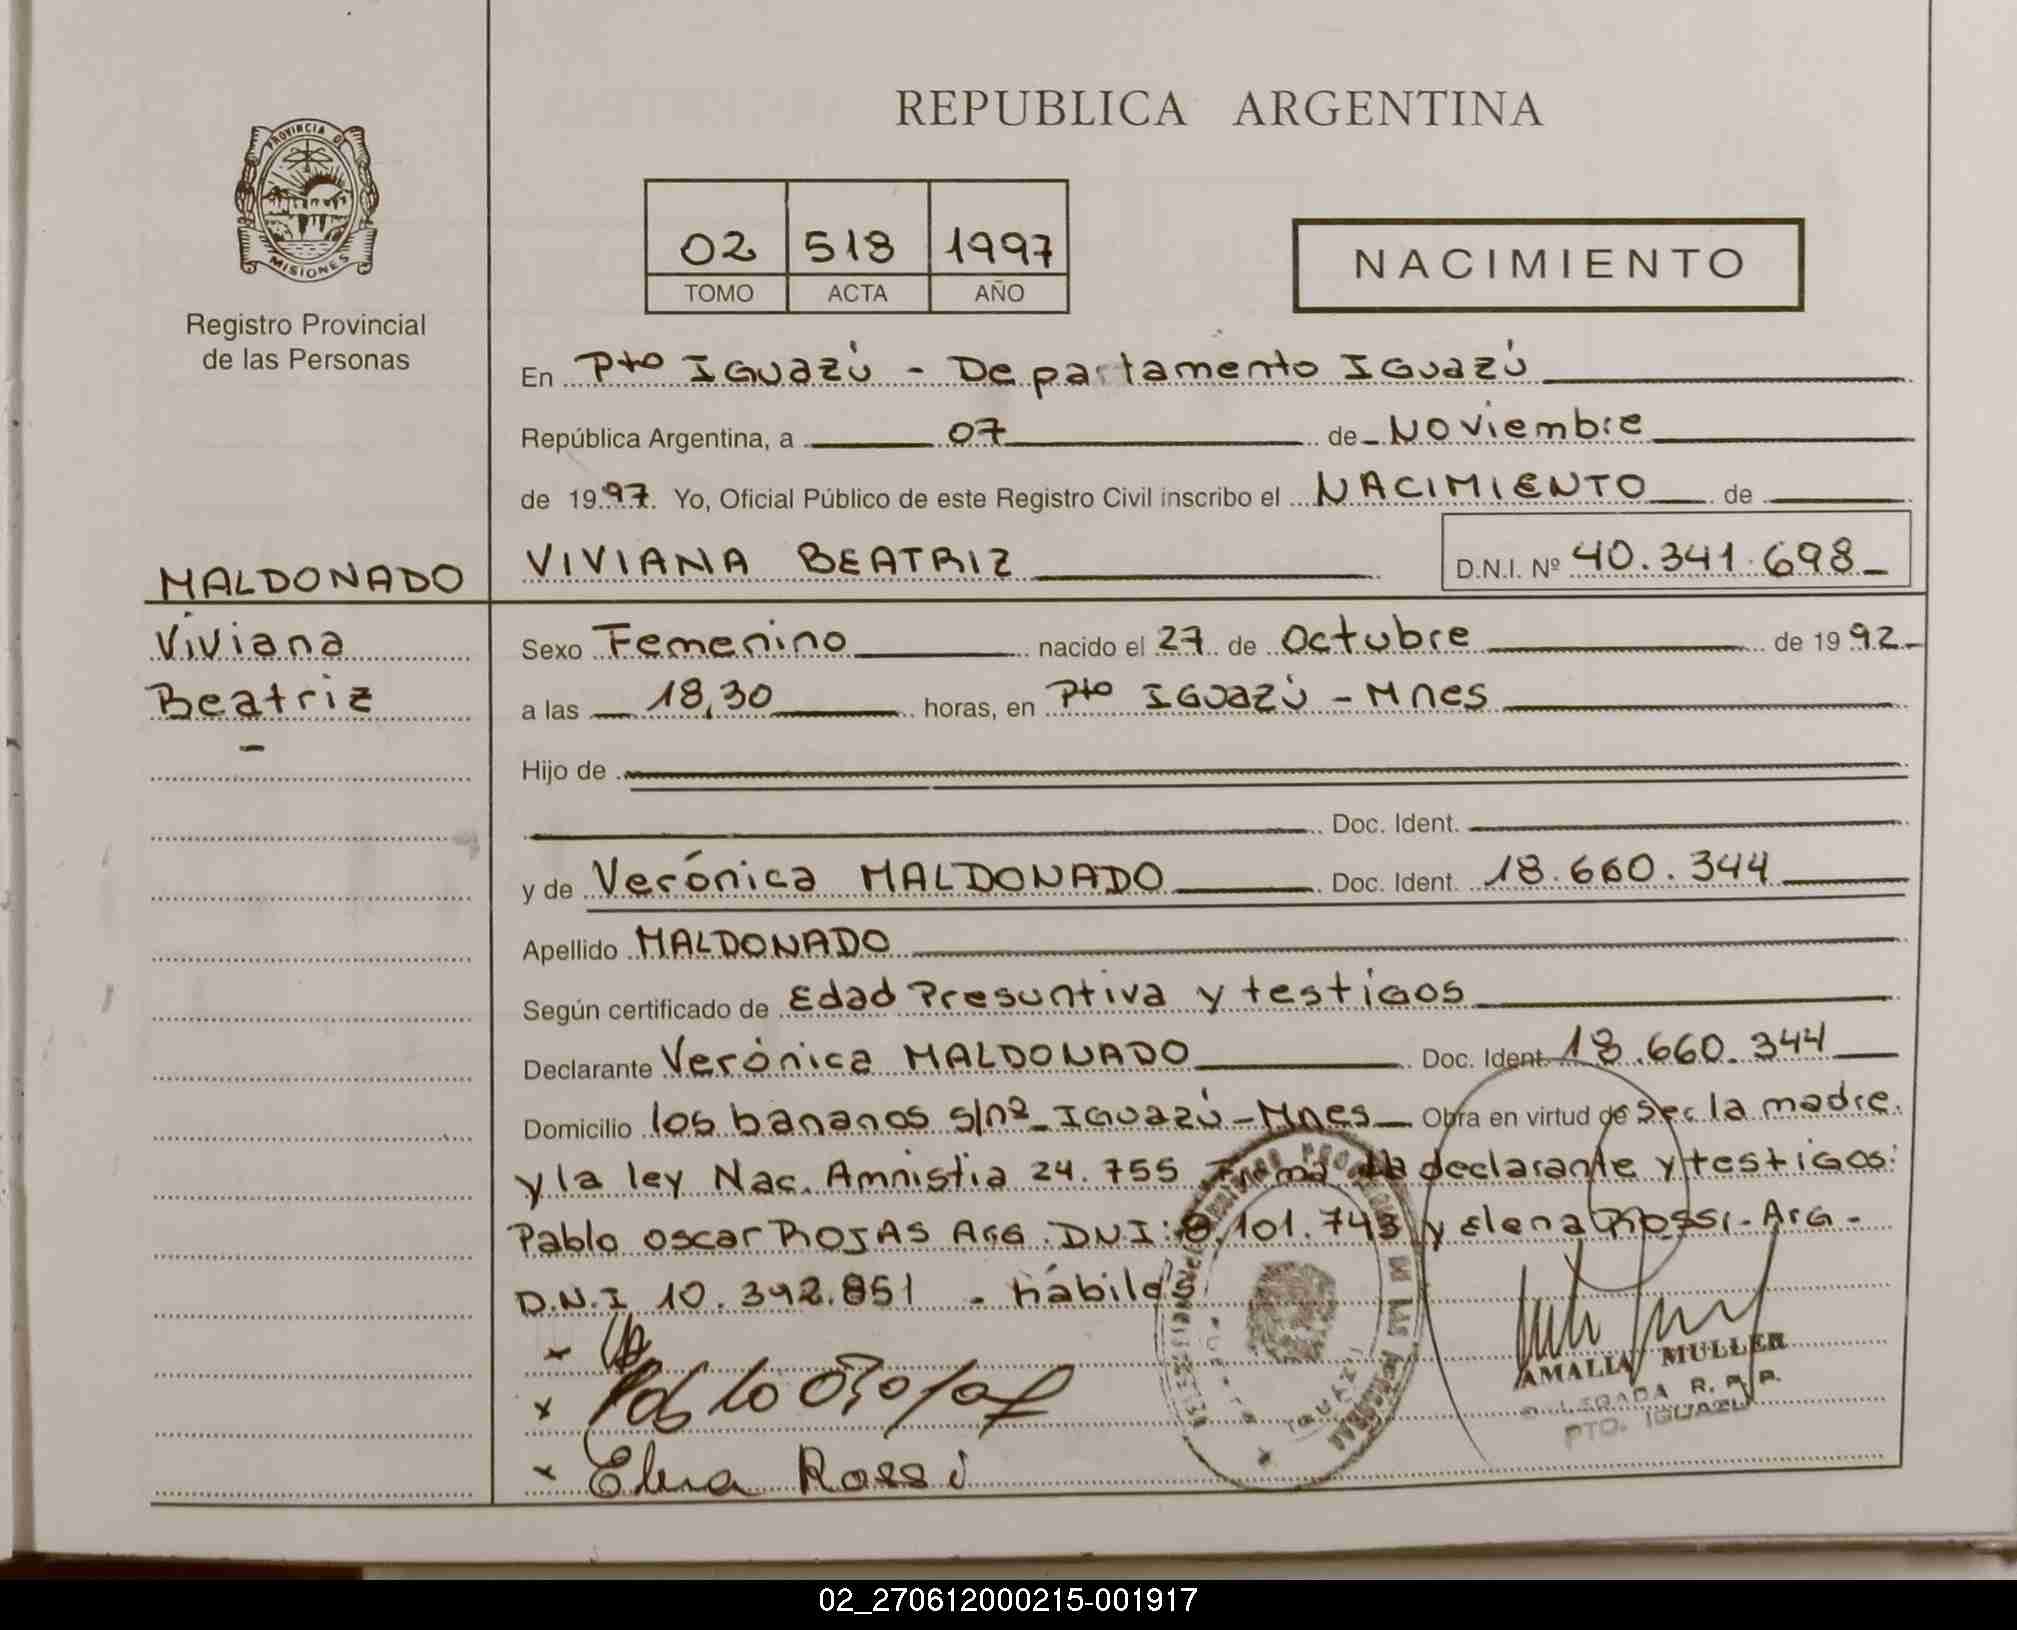 REPUBLICA ARGENTINA
PROVINCIA DE
MISIONES
Registro Provincial
de las Personas
02 518 1997
TOMO ACTA AÑO
NACIMIENTO
En Pto IGUAZÚ - Departamento IGUAZÚ
República Argentina, a 07 de NOViembre
de 1997. Yo, Oficial Público de este Registro Civil inscribo el NACIMIENTO de
VIVIANA BEATRIZ D.N.I. Nº 40.341.698
MALDONADO
Viviana
Beatriz
-
Sexo Femenino nacido el 27 de Octubre de 1992
a las 18,30 horas, en Pto IGUAZÚ - Mnes
Hijo de
Doc. Ident.
y de Verónica MALDONADO Doc. Ident. 18.660.344
Apellido MALDONADO
Según certificado de Edad Presuntiva y testigos
Declarante Verónica MALDONADO Doc. Ident. 18.660.344
Domicilio los bananos s/nº - IGUAZÚ - Mnes Obra en virtud de Ser la madre.
y la ley Nac. Amnistia 24.755 Firma la declarante y testigos:
Pablo oscar ROJAS Arg. DNI: 8.101.743 y Elena Rossi - Arg -
D.N.I 10.392.851 - hábiles
x
x Pablo O Rojas
x Elena Rossi
AMALIA MULLER
DELEGADA R. P. P.
PTO. IGUAZU
02_270612000215-001917